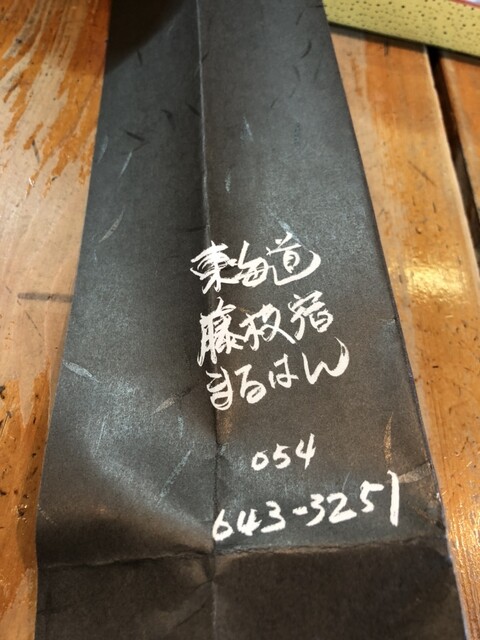 東海道
藤枝宿
まるはん
054
643-3251